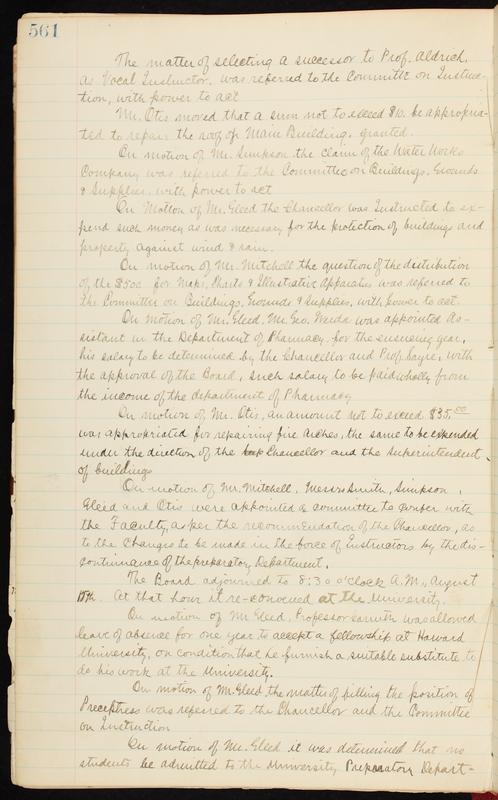 561
The matter of selecting a successor to Prof. Aldrich,
as Vocal Instructor, was referred to the Committe on Instruc-
tion, with power to act
Mr. Otis moved that a sum not to exceed $10. be appropria-
ted to repair the roof of Main Building. granted.
On motion of Mr. Simpson the claim of the Water Works
Company was referred to the Committee on Buildings, Grounds
& Supplies, with power to act
On Motion of Mr. Gleed the Chancellor was Instructed to ex-
pend such money as was necessary for the protection of buildings and
property against wind & rain.
On motion of Mr. Mitchell the question of the distribution
of the $500 for Maps, Charts & Illustrative Apparatus was referred to
the Committee on Buildings, Grounds & Supplies, with power to act.
On motion of Mr. Gleed, Mr. Geo. was appointed As-
sistant in the Department of Pharmacy for the ensueing year,
his salary to be determined by the Chancellor and Prof. Sayre, with
the approval of the Board, such salary to be paid wholly from
the income of the department of Pharmacy
On motion of Mr. Otis, an amount not to exceed $35.00
was appropriated for repairing fire arches, the same to be expended
under the direction of the Chancellor and the Superintendent
of buildings
On motion of Mr. Mitchell, Messrs Smith, Simpson,
Gleed and Otis were appointed a committee to confer with
the Faculty, as per the recommendation of the Chancellor, as
to the changes to be made in the force of Instructors by the dis-
continuance of the preparatory Department.
The Board adjourned to 8:30 o'clock A.M., August
15th. At that hour it re-convened at the University.
On motion of Mr Gleed, Professor was allowed
leave of absence for one year to accept a fellowship at Harvard
University, on condition that he furnish a suitable substitute to
do his work at the University.
On motion of Mr. Gleed the matter of filling the position of
Preceptress was referred to the Chancellor and the Committee
on Instruction
On motion of Mr. Gleed it was determined that no
students be admitted to the University Preparatory Depart-